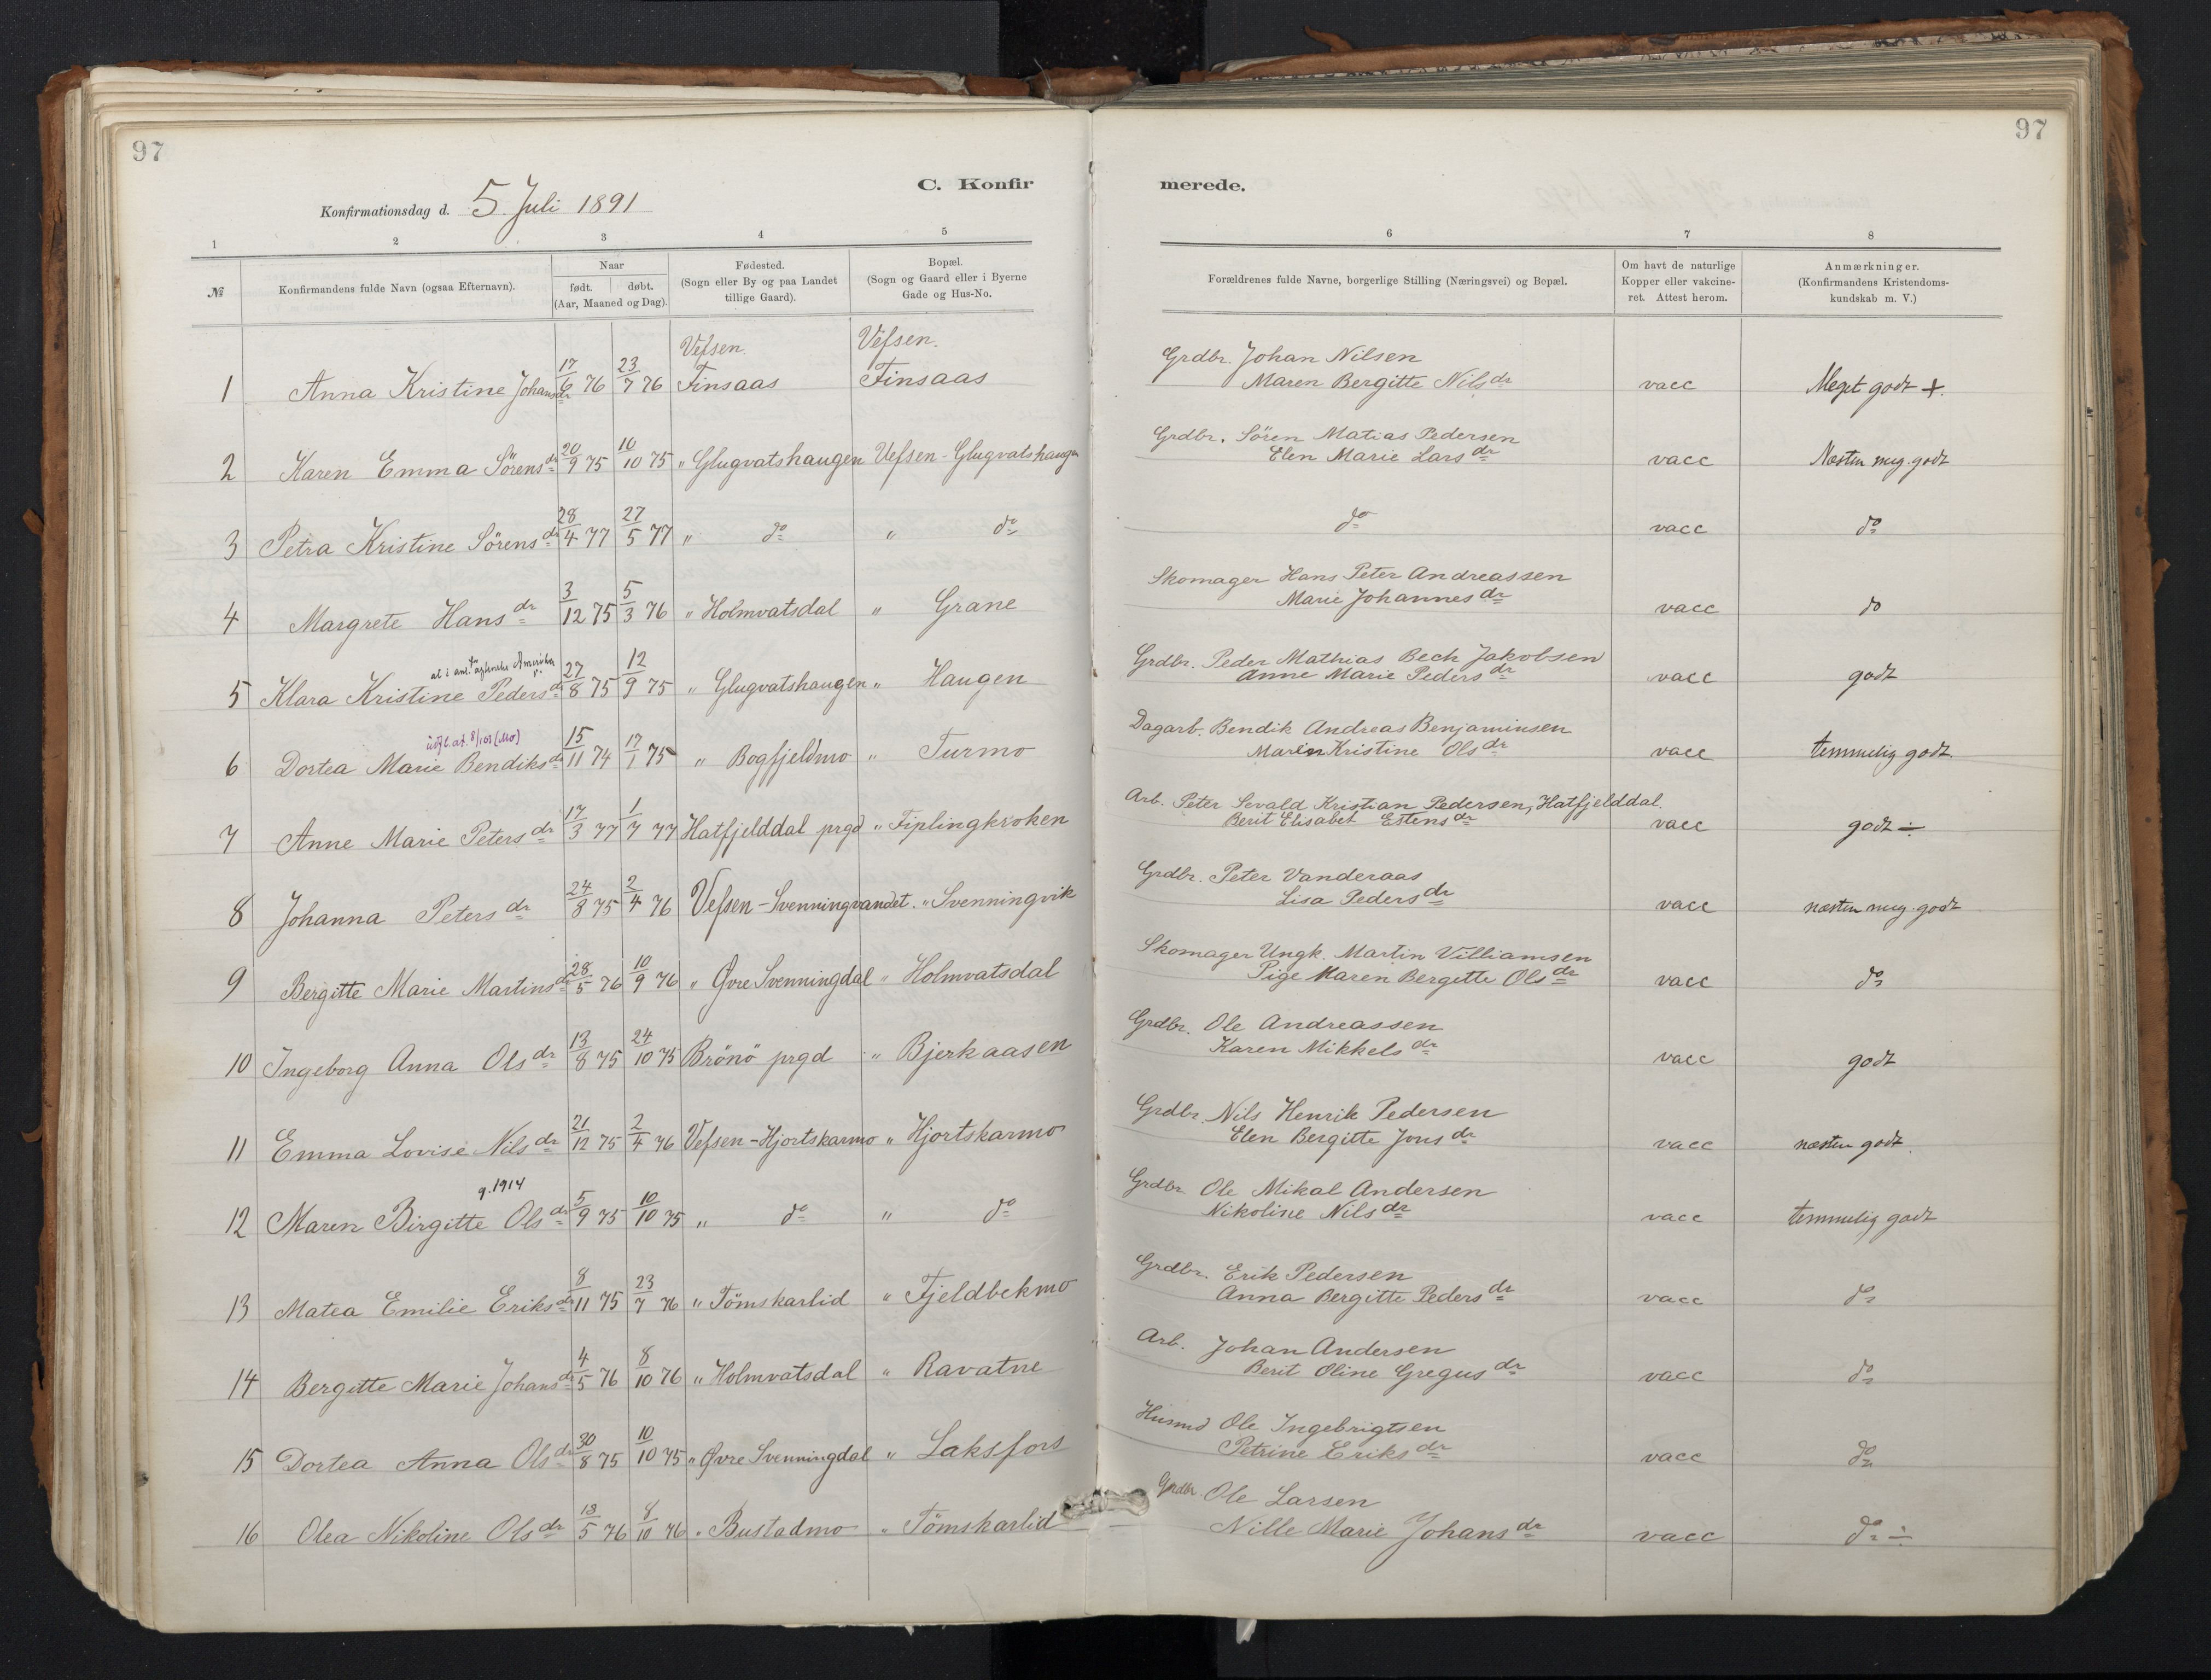 97
97
C. Konfir
merede.
Konfirmationsdag d. 5. Juli 1891
1 2 3 4 5 6 7 8
№ Konfirmandens fulde Navn (ogsaa Efternavn). Naar født. døbt. (Aar, Maaned og Dag). Fødested. (Sogn eller By og paa Landet tillige Gaard). Bopæl. (Sogn og Gaard eller i Byerne Gade og Hus-No. Forældrenes fulde Navne, borgerlige Stilling (Næringsvei) og Bopæl. Om havt de naturlige Kopper eller vakcine-ret. Attest herom. Anmærkninger. (Konfirmandens Kristendoms-kundskab m. V.)
Vefsen. Vefsen. Grdbr. Johan Nilsen
1 Anna Kristine Johansdr 17/6 76 23/7 76 Finsaas Finsaas Maren Bergitte Nilsdr vacc Meget godt +.
Grdbr. Sören Matias Pedersen
2 Karen Emma Sörensdr 20/9 75 10/10 75 " Glugvatshaugen Vefsen - Glugvatshaugen Elen Marie Larsdr vacc Næsten meg. godt
3 Petra Kristine Sörensdr 28/4 77 27/5 77 " do " do do vacc do
Skomager Hans Peter Andreassen
4 Margrete Hansdr 3/12 75 5/3 76 " Holmvatsdal " Grane Marie Johannesdr vacc do
Amerika
Grdbr. Peder Mathias Bech Jakobsen
5 Klara Kristine Pedersdr 27/8 75 12/9 75 " Glugvatshaugen " Haugen Anne Marie Pedersdr vacc godt
Dagarb. Bendik Andreas Benjaminsen
6 Dortea Marie Bendiksdr 15/11 74 17/1 75 " Bogfjeldmo " Turmo Maren Kristine Olsdr vacc temmelig godt.
Arb. Peter Sevald Kristian Pedersen, Hatfjelddal.
7 Anne Marie Petersdr 17/3 77 1/7 77 Hatfjelddal prgd " Fiplingkroken Berit Elisabet Estensdr vacc godt ÷
Grdbr. Peter Vanderaas
8 Johanna Petersdr 24/8 75 2/4 76 Vefsen - Svenningvandet. " Svenningvik Lisa Pedersdr vacc næsten meg. godt
Skomager Ungk. Martin Villiamsen
9 Bergitte Marie Martinsdr 28/5 76 10/9 76 " Øvre Svenningdal " Holmvatsdal Pige Maren Bergette Olsdr vacc do
Grdbr. Ole Andreassen
10 Ingeborg Anna Olsdr 13/8 75 24/10 75 Brönö prgd " Bjerkaasen Karen Mikkelsdr vacc godt
Grdbr. Nils Henrik Pedersen
11 Emma Lovise Nilsdr 21/12 75 2/4 76 Vefsen - Hjortskarmo " Hjortskarmo Elen Bergitte Jonsdr vacc næsten godt.
g. 1914
Grdbr Ole Mikal Andersen
12 Maren Birgitte Olsdr 5/9 75 10/10 75 " do " do Nikoline Nilsdr vacc temmelig godt
Grdbr. Erik Pedersen
13 Matea Emilie Eriksdr 8/11 75 23/7 76 " Tömskarlid " Fjeldbekmo Anna Bergitte Pedersdr vacc do
Arb. Johan Andersen
14 Bergitte Marie Johansdr 4/5 76 8/10 76 " Holmvatsdal " Ravatne Berit Oline Gregusdr vacc do
Husmd Ole Ingebrigtsen
15 Dortea Anna Olsdr 30/8 75 10/10 75 " Øvre Svenningdal " Laksfors Petrine Eriksdr vacc do
Grdbr. Ole Larsen
16 Olea Nikoline Olsdr 13/5 76 8/10 76 " Bustadmo " Tömskarlid Nille Marie Johansdr vacc do ÷